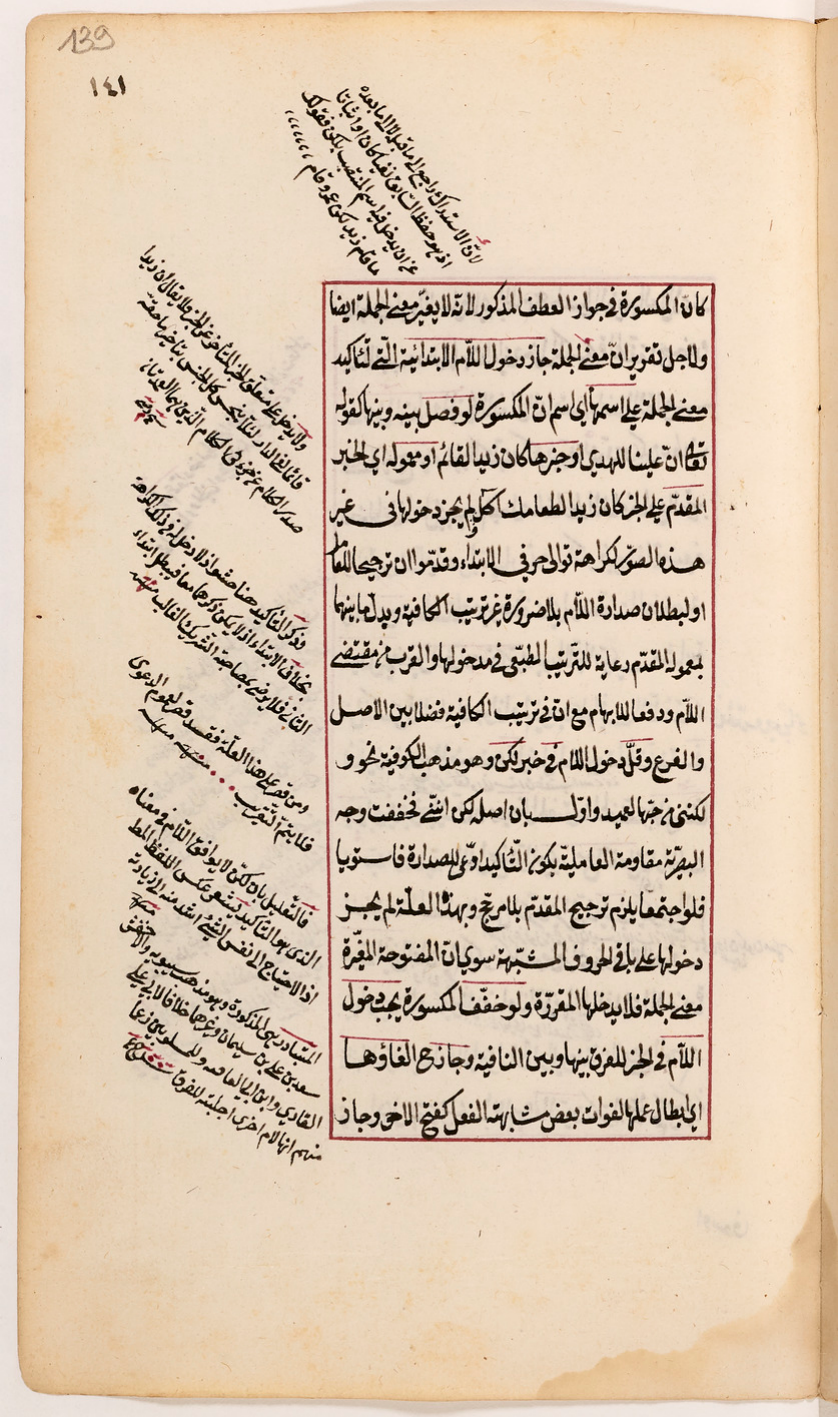 139
١٤١
لانّ الاستدراك راجع الى ما قبل لا الى ما بعده
اذ هو حفظ السابق نفيا كان او اثباتا
عن ان يدخل فيه اسم المنتصب بلكن فقولك
ما قام زيد لكن عمروا قام
كانّ المكسورة في جواز العطف المذكور لانه لا يغيّر معنى الجملة ايضا
ولاجل تقرير انّ معنى الجملة جاز دخول اللام الابتدائية التى لتاكيد
معنى الجملة على اسمها اى اسم انّ المكسورة لو فصل بينه وبينها كقوله
تعالى انّ علينا للهدى او خبرها كان زيدا لقائم او معموله اى الخبر
المقدّم على الخبر كان زيدا لطعامك آكل ولم يجز دخولها فى غير
هذه الصور لكراهة توالى حرفى الابتداء وقدموا ان ترجيحا للعامل
او لبطلان صدارة اللام بلا ضرورة غير ترتيب الكافية وبدل ما بينهما
بمعموله المقدّم رعاية للترتيب الطبعى فى مدخولها والقرب من مقتضى
اللام ودفعا للابهام مع ان فى ترتيب الكافية فضلا بين الاصل
والفرع وقلّ دخول اللام فى خبر لكن وهو مذهب الكوفية نحو و
لكننى من حبها لعميد واوّل بان اصله لكن اننى فخففت وجه
البصرية مقاومة العاملية بكون التاكيد ادّعى للصدارة فاستويا
فلو اجتمعا يلزم ترجيح المقدم بلا مرجّح وبهذه العلة لم يجز
دخولها على باقى الحروف المشبّهة سوى ان المفتوحة المغيّرة
معنى الجملة فلا يدخلها المقررة ولو خفّف المكسورة يجب دخول
اللام فى الخبر للفرق بينها وبين النافية وجاز ح الغاؤها
اى ابطال عملها لفوات بعض مشابهته الفعل كفتح الآخر وجاز
ولا يدخل على متعلق الخبر المتأخر عن الخبر فلا يقال ان زيدا
قائم لفى الدار لئلا يبخس كل الجنس بتأخير ما حقه
صدر الكلام عن جزئى الكلام الذين هما العمدتان
وذكر التأكيد هنا ضمنا اذ لا دخل له فى ذلك الكراهة
بخلاف الابتداء اذ لا يمكن ذكرهما معا فيبطل ابتداء
الثانى فلا يرضى بمصاحبة الشريك الغالب منه
ومن قصر على هذا العلة فقد قصر لعموم الدعوى
فلا يتم التقريب منه
فالتعليل بان لكن لا يوافق اللام فى معناه
الذى هو التاكيد يشعر عكس اللفظ المط
اذ الاحتياج الى نفس الشئ اشد منه الى زيادته منه
المتبادر هى المذكورة وهو مذهب سيبويه والاخفش
سعد بن على بن سليمان وغيرهما خلافا لابى على
الفارسى وابن ابى العافيه وللشلوبين زعما
منهم انها لام اخرى اجلبته للفرق